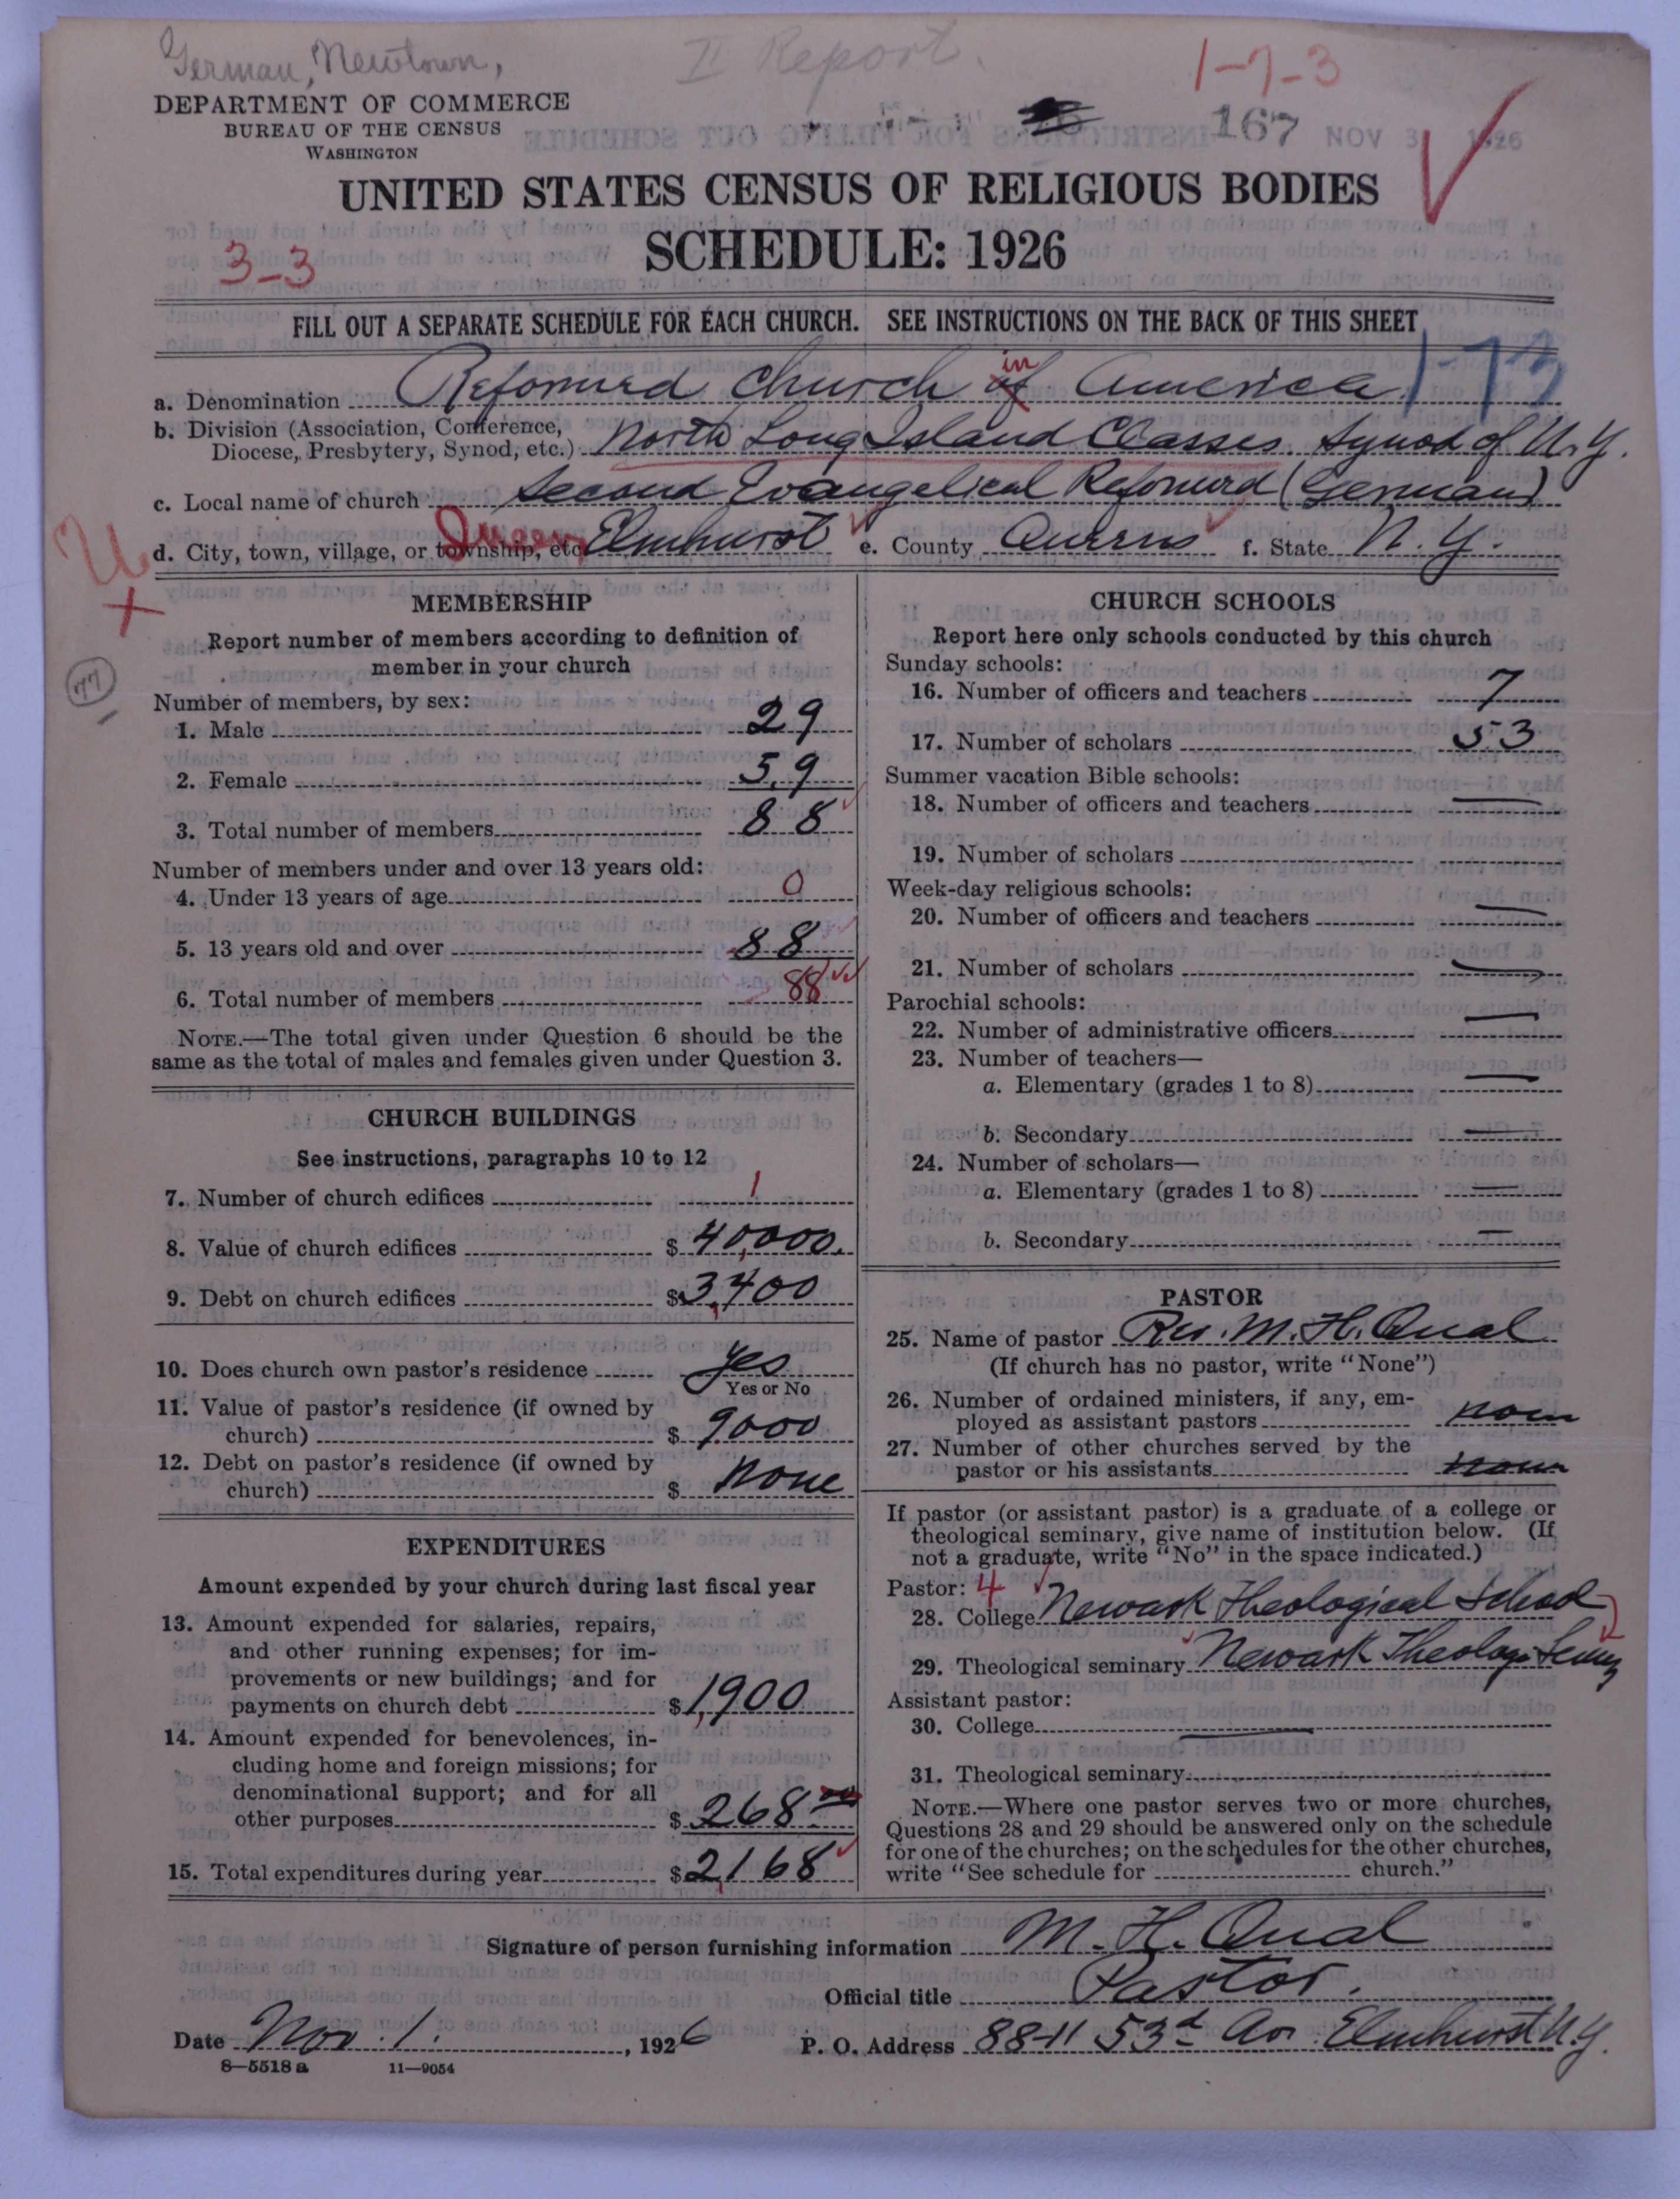 German, Newtown,
II Report.
1-7-3
DEPARTMENT OF COMMERCE
BUREAU OF THE CENSUS
WASHINGTON
167 NOV 3 1926
UNITED STATES CENSUS OF RELIGIOUS BODIES
SCHEDULE: 1926
3-3
FILL OUT A SEPARATE SCHEDULE FOR EACH CHURCH. SEE INSTRUCTIONS ON THE BACK OF THIS SHEET
1-73
a. Denomination Reformed Church of in America
b. Division (Association, Conference,
Diocese, Presbytery, Synod, etc.) North Long Island Classes. Synod of N.Y.
c. Local name of church Second Evangelical Reformed (German)
d. City, town, village, or township, etc Queens Elmhurst e. County Queens f. State N.Y.
U
77
MEMBERSHIP
Report number of members according to definition of
member in your church
Number of members, by sex:
1. Male 29
2. Female 59
3. Total number of members 88
Number of members under and over 13 years old:
4. Under 13 years of age 0
5. 13 years old and over 88
6. Total number of members 88
NOTE.—The total given under Question 6 should be the
same as the total of males and females given under Question 3.
CHURCH BUILDINGS
See instructions, paragraphs 10 to 12
7. Number of church edifices 1
8. Value of church edifices $ 40,000.
9. Debt on church edifices $ 3,400
10. Does church own pastor's residence yes
Yes or No
11. Value of pastor's residence (if owned by
church) $ 9000
12. Debt on pastor's residence (if owned by
church) $ none
EXPENDITURES
Amount expended by your church during last fiscal year
13. Amount expended for salaries, repairs,
and other running expenses; for im-
provements or new buildings; and for
payments on church debt $ 1,900
14. Amount expended for benevolences, in-
cluding home and foreign missions; for
denominational support; and for all
other purposes $ 268
15. Total expenditures during year $ 2,168
CHURCH SCHOOLS
Report here only schools conducted by this church
Sunday schools:
16. Number of officers and teachers 7
17. Number of scholars 53
Summer vacation Bible schools:
18. Number of officers and teachers —
19. Number of scholars
Week-day religious schools:
20. Number of officers and teachers —
21. Number of scholars —
Parochial schools:
22. Number of administrative officers —
23. Number of teachers—
a. Elementary (grades 1 to 8) —
b. Secondary —
24. Number of scholars—
a. Elementary (grades 1 to 8) —
b. Secondary —
PASTOR
25. Name of pastor Rev. M. H. Qual
(If church has no pastor, write "None")
26. Number of ordained ministers, if any, em-
ployed as assistant pastors none
27. Number of other churches served by the
pastor or his assistants none
If pastor (or assistant pastor) is a graduate of a college or
theological seminary, give name of institution below. (If
not a graduate, write "No" in the space indicated.)
Pastor: 4
28. College Newark Theological School
29. Theological seminary Newark Theolog. Semy
Assistant pastor:
30. College —
31. Theological seminary
NOTE.—Where one pastor serves two or more churches,
Questions 28 and 29 should be answered only on the schedule
for one of the churches; on the schedules for the other churches,
write "See schedule for church."
Signature of person furnishing information M. H. Qual
Official title Pastor.
Date Nov. 1. , 1926 P. O. Address 88-11 53d Av. Elmhurst N.Y.
8—5518 a 11—9054